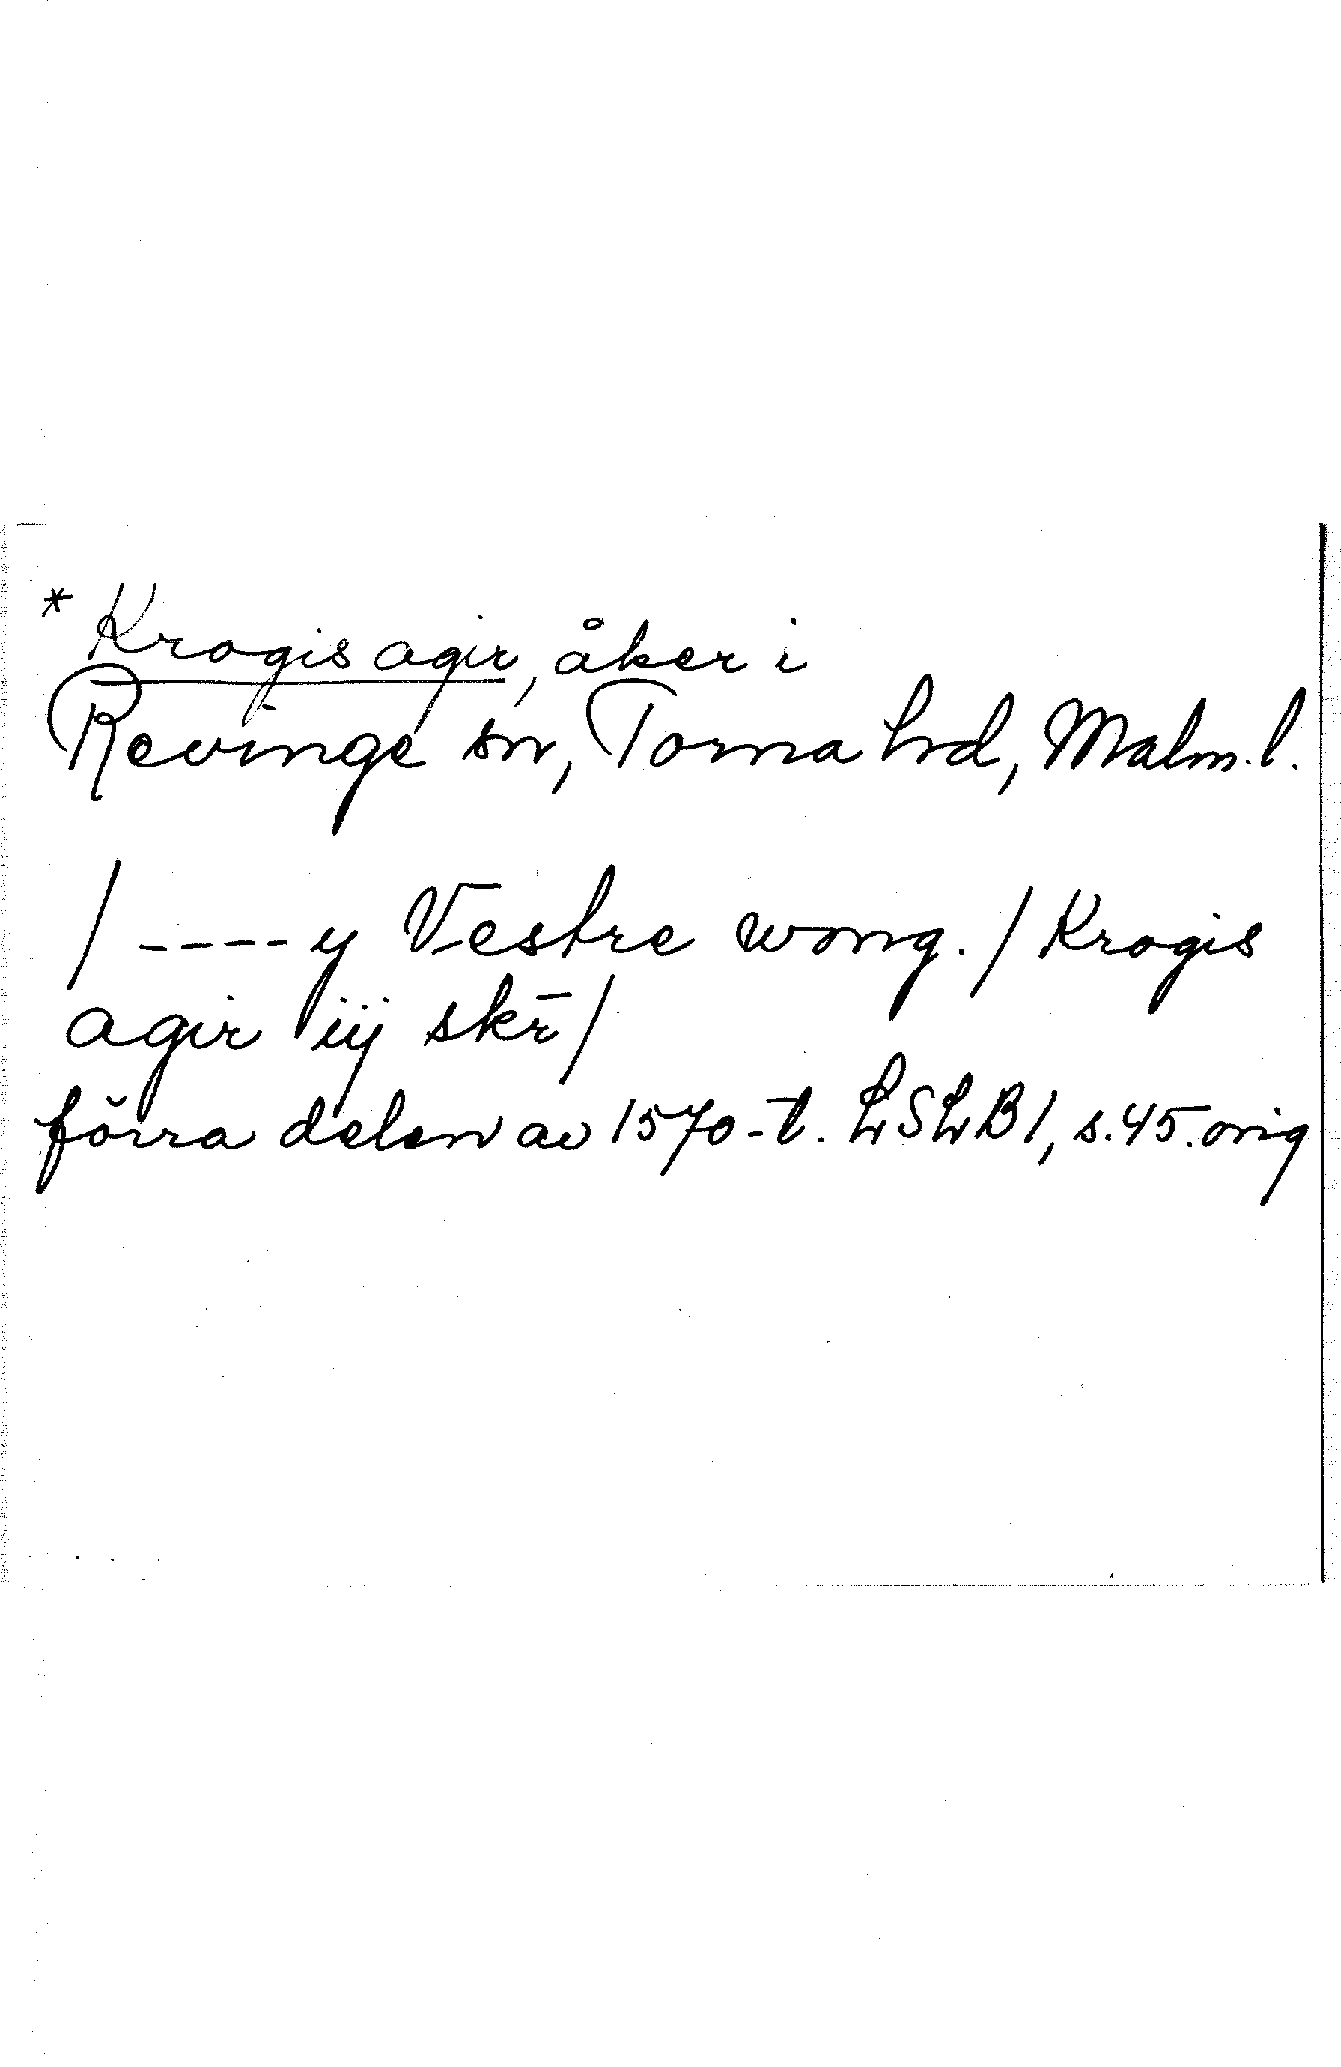 * Krogis agir, åker i
Revinge sn, Torna hrd, Malm.l.
/ ---- y Vestre wong. / Krogis
agir iij skr̄ /
förra delen av 1570-t. LSLB 1, s.45.orig